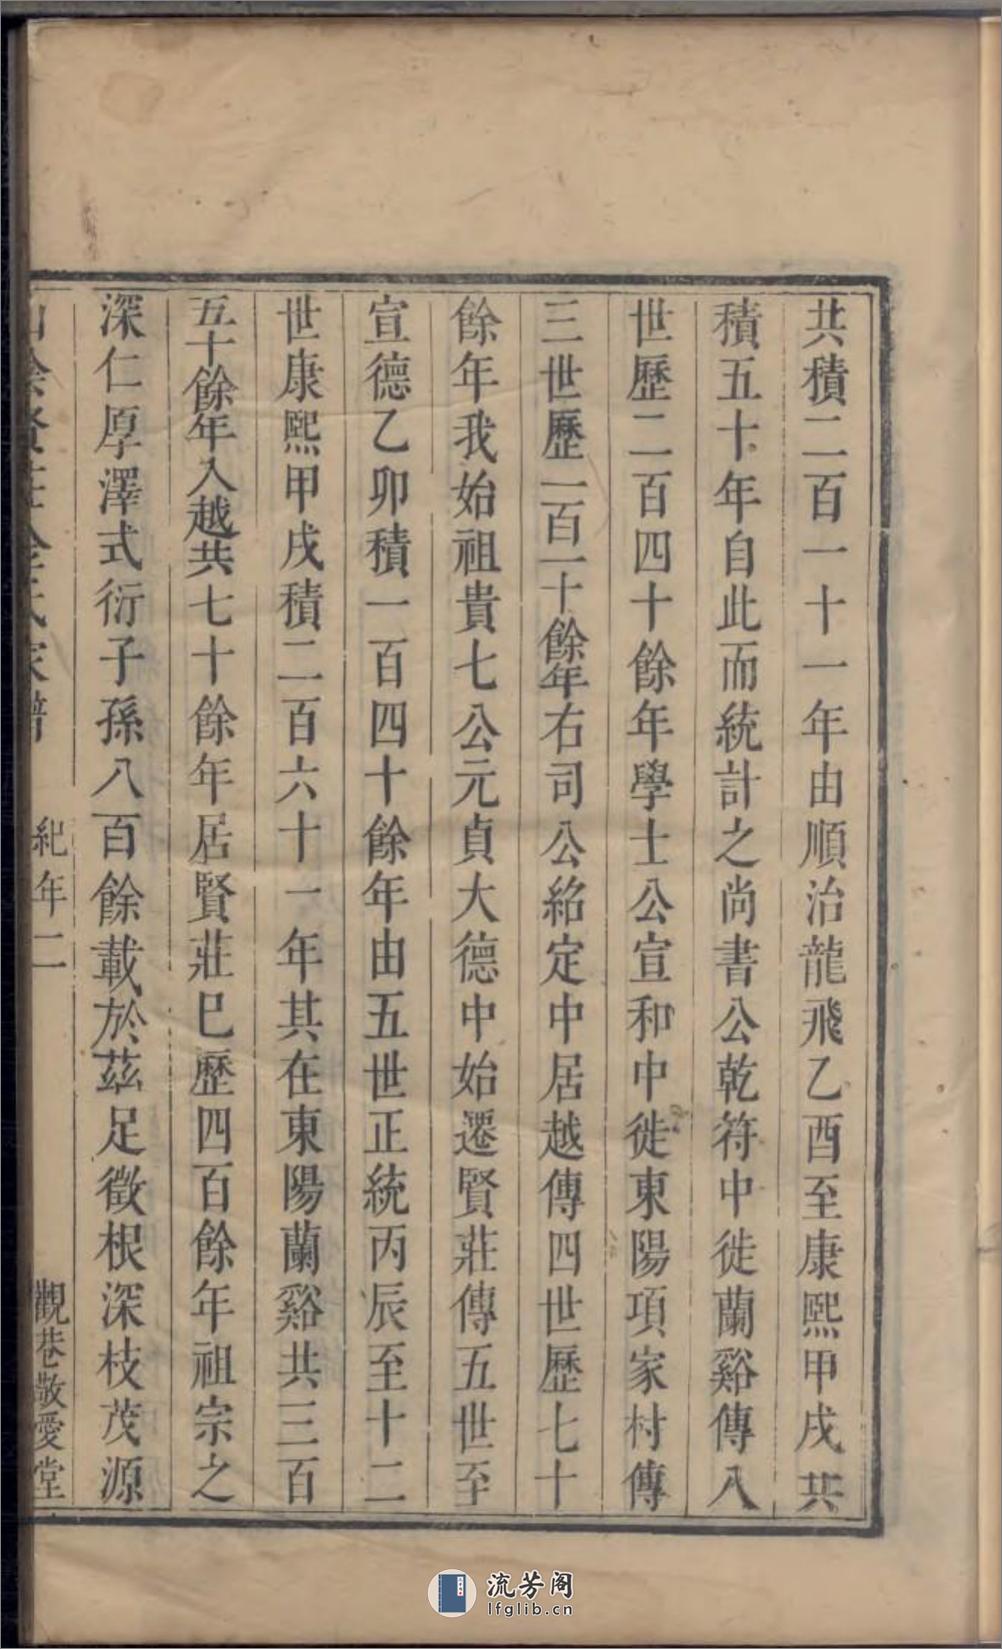 共積二百一十一年由順治龍飛乙酉至康熙甲戌共
積五十年自此而統計之尚書公乾符中徙蘭谿傳八
世歷二百四十餘年學士公宣和中徙東陽項家村傳
三世歷一百一十餘年右司公紹定中居越傳四世歷七十
餘年我始祖貴七公元貞大德中始遷賢莊傳五世至
宣德乙卯積一百四十餘年由五世正統丙辰至十二
世康熙甲戌積二百六十一年其在東陽蘭谿共三百
五十餘年入越共七十餘年居賢莊巳歷四百餘年祖宗之
深仁厚澤式衍子孫八百餘載於茲足徵根深枝茂源
山陰賢莊金氏家譜 紀年二 觀巷敬愛堂
流芳阁
lfglib.cn